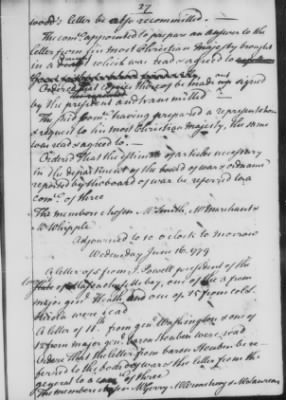 27
wood's letter be also recommitted.
The com^ee appointed to prepare an answer to the
letter from his most Christian Majesty brought
in a draft which was read & agreed to
Ordered That copies thereof be made out signed
by the president and transmitted
The said com^ee having prepared a representation
& request to his most Christian majesty, the same
was read & agreed to.
Ordered That the estimate of articles necessary
in the department of the board of war & ordnance
reported by the board of war be referred to a
com^ee of three
The members chosen Mr Smith, Mr Marchant &
Mr Whipple
Adjourned to 10 o Clock to morrow
Wednesday June 16. 1779
A letter of 5 from J. Powell president of the
state of Massachusetts bay, one of the 8 from
major gen^l Heath and one of 15 from col
were read
A letter of 11. from gen^l Washington & one of
15 from major gen^l baron Steuben were read
Ordered That the letter from baron Steuben be re-
ferred to the board of war & the letter from the
general to a com^ee of three
The members chosen Mr Gerry Mr Armstrong & Mr Laurens